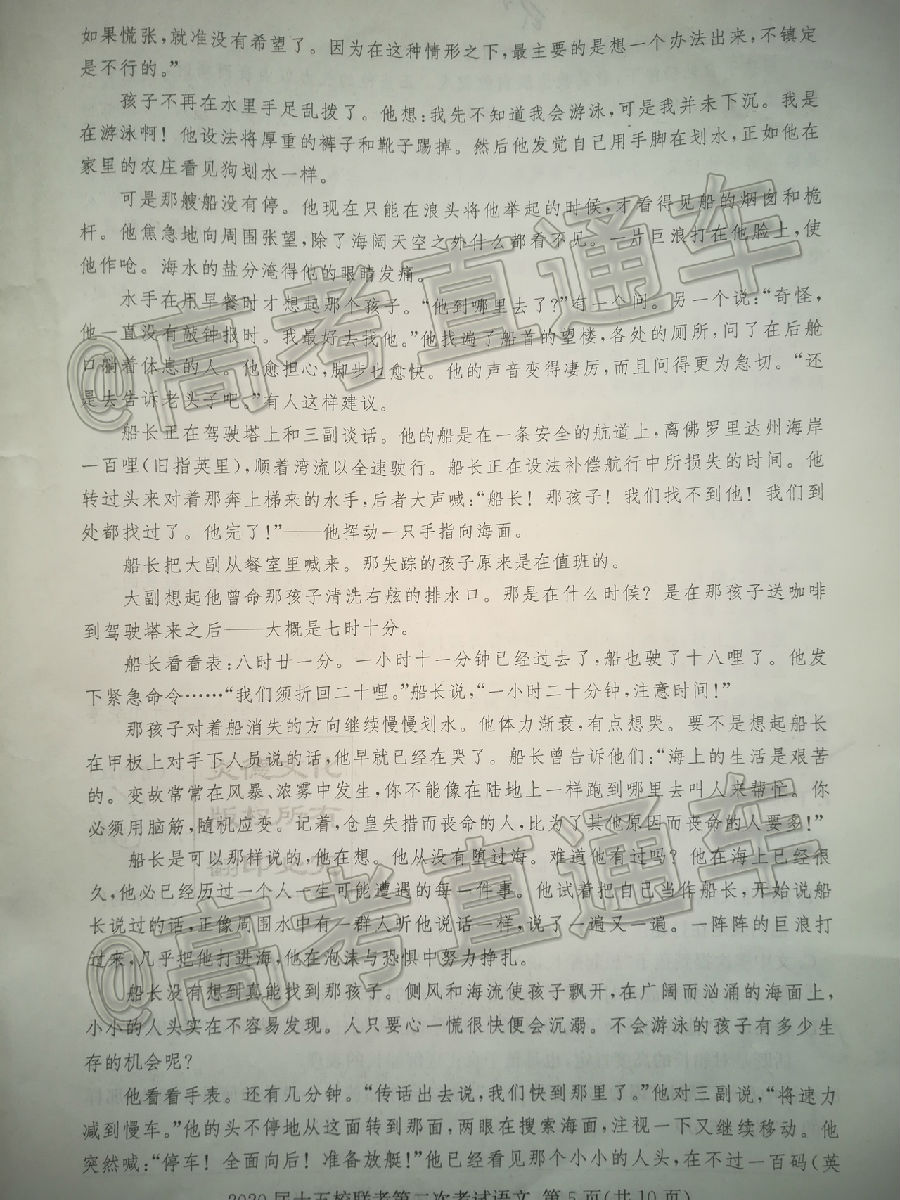 如果慌张，就准没有希望了。因为在这种情形之下，最主要的是想一个办法出来，不镇定
是不行的。”
孩子不再在水里手足乱拨了。他想：我先不知道我会游泳，可是我并未下沉。我是
在游泳啊！他设法将厚重的裤子和靴子踢掉。然后他发觉自己用手脚在划水，正如他在
家里的农庄看见狗划水一样。
可是那艘船没有停。他现在只能在浪头将他举起的时候，才看得见船的烟囱和桅
杆。他焦急地向周围张望，除了海阔天空之外什么都看不见。一片巨浪打在他脸上，使
他作呛。海水的盐分淹得他的眼睛发痛。
水手在用早餐时才想起那个孩子。“他到哪里去了？”有一个问。另一个说：“奇怪，
他一直没有敲钟报时。我最好去找他。”他找遍了船首的望楼，各处的厕所，问了在后舱
口躺着休息的人。他愈担心，脚步也愈快。他的声音变得凄厉，而且问得更为急切。“还
是去告诉老头子吧，”有人这样建议。
船长正在驾驶塔上和三副谈话。他的船是在一条安全的航道上，离佛罗里达州海岸
一百哩（旧指英里），顺着湾流以全速驶行。船长正在设法补偿航行中所损失的时间。他
转过头来对着那奔上梯来的水手，后者大声喊：“船长！那孩子！我们找不到他！我们到
处都找过了。他完了！”——他挥动一只手指向海面。
船长把大副从餐室里喊来。那失踪的孩子原来是在值班的。
大副想起他曾命那孩子清洗右舷的排水口。那是在什么时候？是在那孩子送咖啡
到驾驶塔来之后——大概是七时十分。
船长看看表：八时廿一分。一小时十一分钟已经过去了，船也驶了十八哩了。他发
下紧急命令……“我们须折回二十哩。”船长说，“一小时二十分钟，注意时间！”
那孩子对着船消失的方向继续慢慢划水。他体力渐衰，有点想哭。要不是想起船长
在甲板上对手下人员说的话，他早就已经在哭了。船长曾告诉他们：“海上的生活是艰苦
的。变故常常在风暴、浓雾中发生，你不能像在陆地上一样跑到哪里去叫人来帮忙。你
必须用脑筋，随机应变。记着，仓皇失措而丧命的人，比为了其他原因而丧命的人要多！”
船长是可以那样说的，他在想。他从没有堕过海。难道他有过吗？他在海上已经很
久，他必已经历过一个人一生可能遭遇的每一件事。他试着把自己当作船长，开始说船
长说过的话，正像周围水中有一群人听他说话一样，说了一遍又一遍。一阵阵的巨浪打
过来，几乎把他打进海，他在泡沫与恐惧中努力挣扎。
船长没有想到真能找到那孩子。侧风和海流使孩子飘开，在广阔而汹涌的海面上，
小小的人头实在不容易发现。人只要心一慌很快便会沉溺。不会游泳的孩子有多少生
存的机会呢？
他看看手表。还有几分钟。“传话出去说，我们快到那里了。”他对三副说，“将速力
减到慢车。”他的头不停地从这面转到那面，两眼在搜索海面，注视一下又继续移动。他
突然喊：“停车！全面向后！准备放艇！”他已经看见那个小小的人头，在不过一百码（英
2020届十五校联考第二次考试语文 第5页(共10页)
@高考直通车
@高考直通车
炎德文化
版权所有
翻印必究